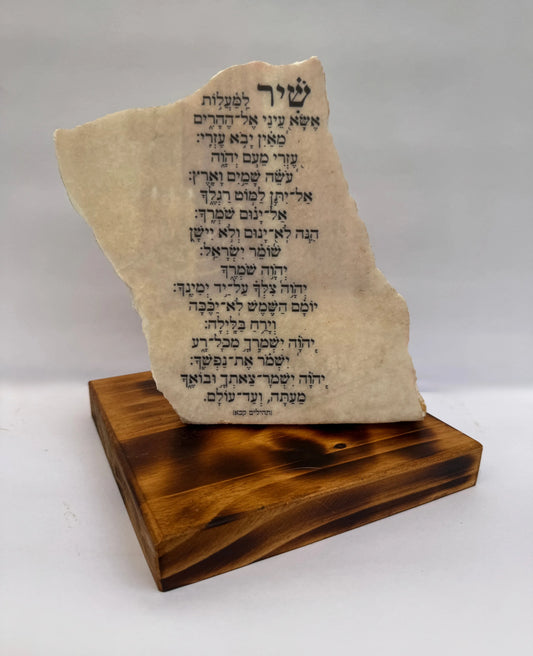 שִׁיר לַמַּעֲלוֹת
אֶשָּׂא עֵינַי אֶל־הֶהָרִים
מֵאַיִן יָבֹא עֶזְרִי׃
עֶזְרִי מֵעִם יְהֹוָה
עֹשֵׂה שָׁמַיִם וָאָרֶץ׃
אַל־יִתֵּן לַמּוֹט רַגְלֶךָ
אַל־יָנוּם שֹׁמְרֶךָ׃
הִנֵּה לֹא־יָנוּם וְלֹא יִישָׁן
שׁוֹמֵר יִשְׂרָאֵל׃
יְהֹוָה שֹׁמְרֶךָ
יְהֹוָה צִלְּךָ עַל־יַד יְמִינֶךָ׃
יוֹמָם הַשֶּׁמֶשׁ לֹא־יַכֶּכָּה
וְיָרֵחַ בַּלָּיְלָה׃
יְהֹוָה יִשְׁמָרְךָ מִכָּל־רָע
יִשְׁמֹר אֶת־נַפְשֶׁךָ׃
יְהֹוָה יִשְׁמָר־צֵאתְךָ וּבוֹאֶךָ
מֵעַתָּה, וְעַד־עוֹלָם.
(תהילים קכא)